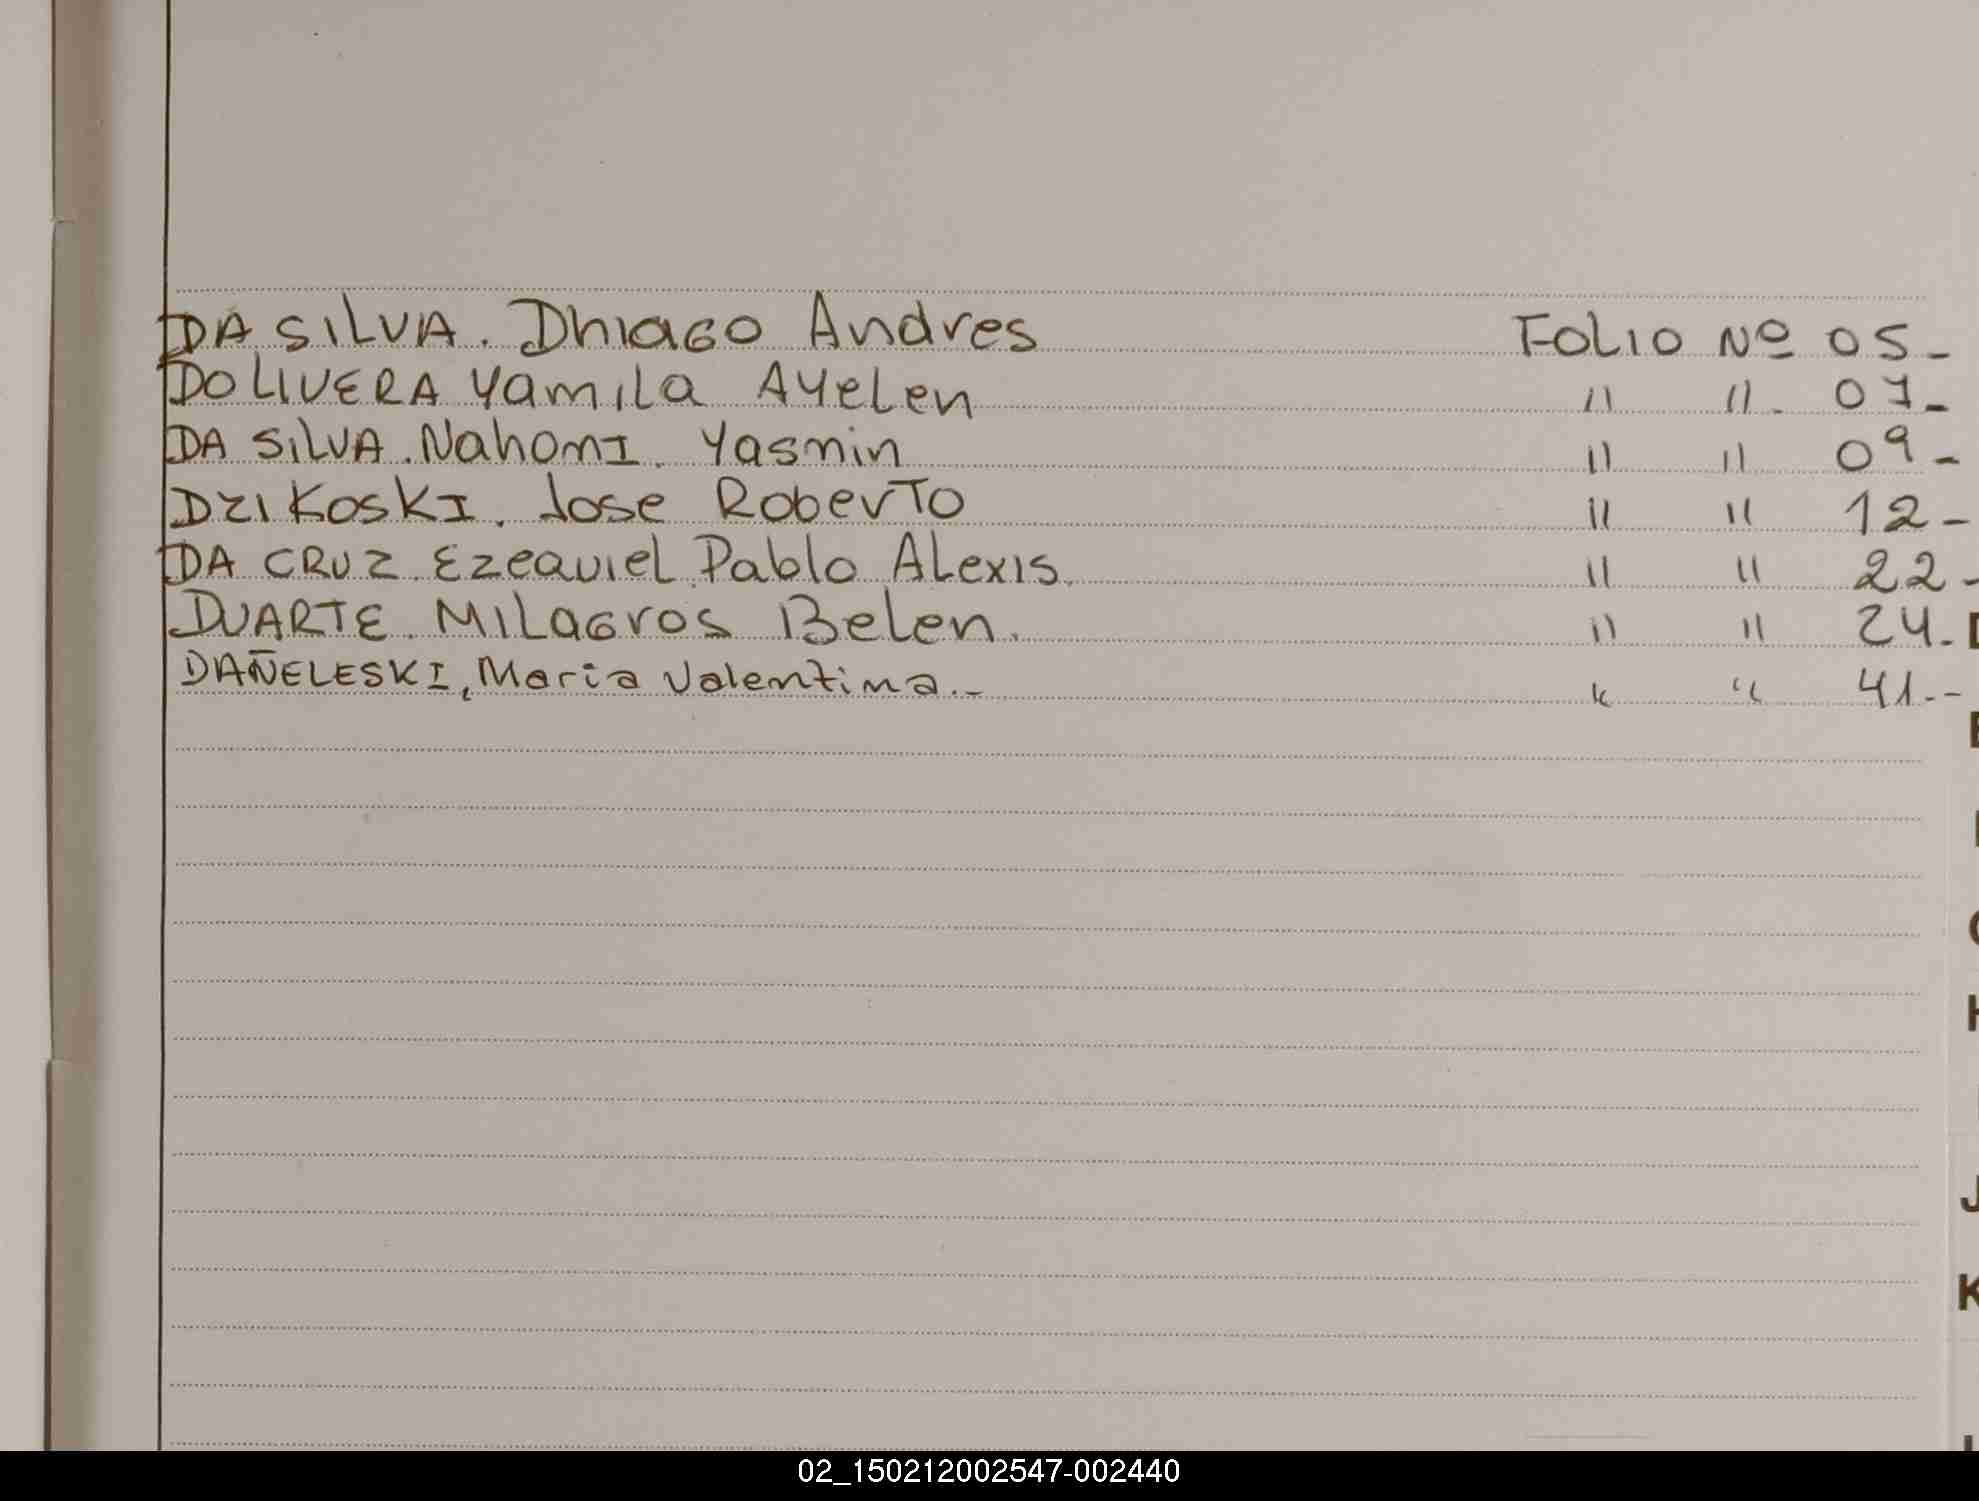 DA SILVA. Dhiago Andres Folio Nº 05-
DOLIVERA Yamila Ayelen " ". 07-
DA SILVA. Nahomi. Yasmin " " 09-
DZIKOSKI. Jose Roberto " " 12-
DA CRUZ. Ezequiel Pablo Alexis. " " 22-
DUARTE. Milagros Belen. " " 24.-
DAÑELESKI, Maria Valentina.- " " 41.--
D
E
G
H
J
K
02_150212002547-002440